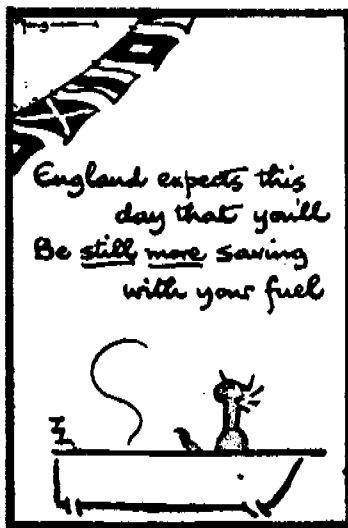 England expects this
day that you'll
Be still more saving
with your fuel